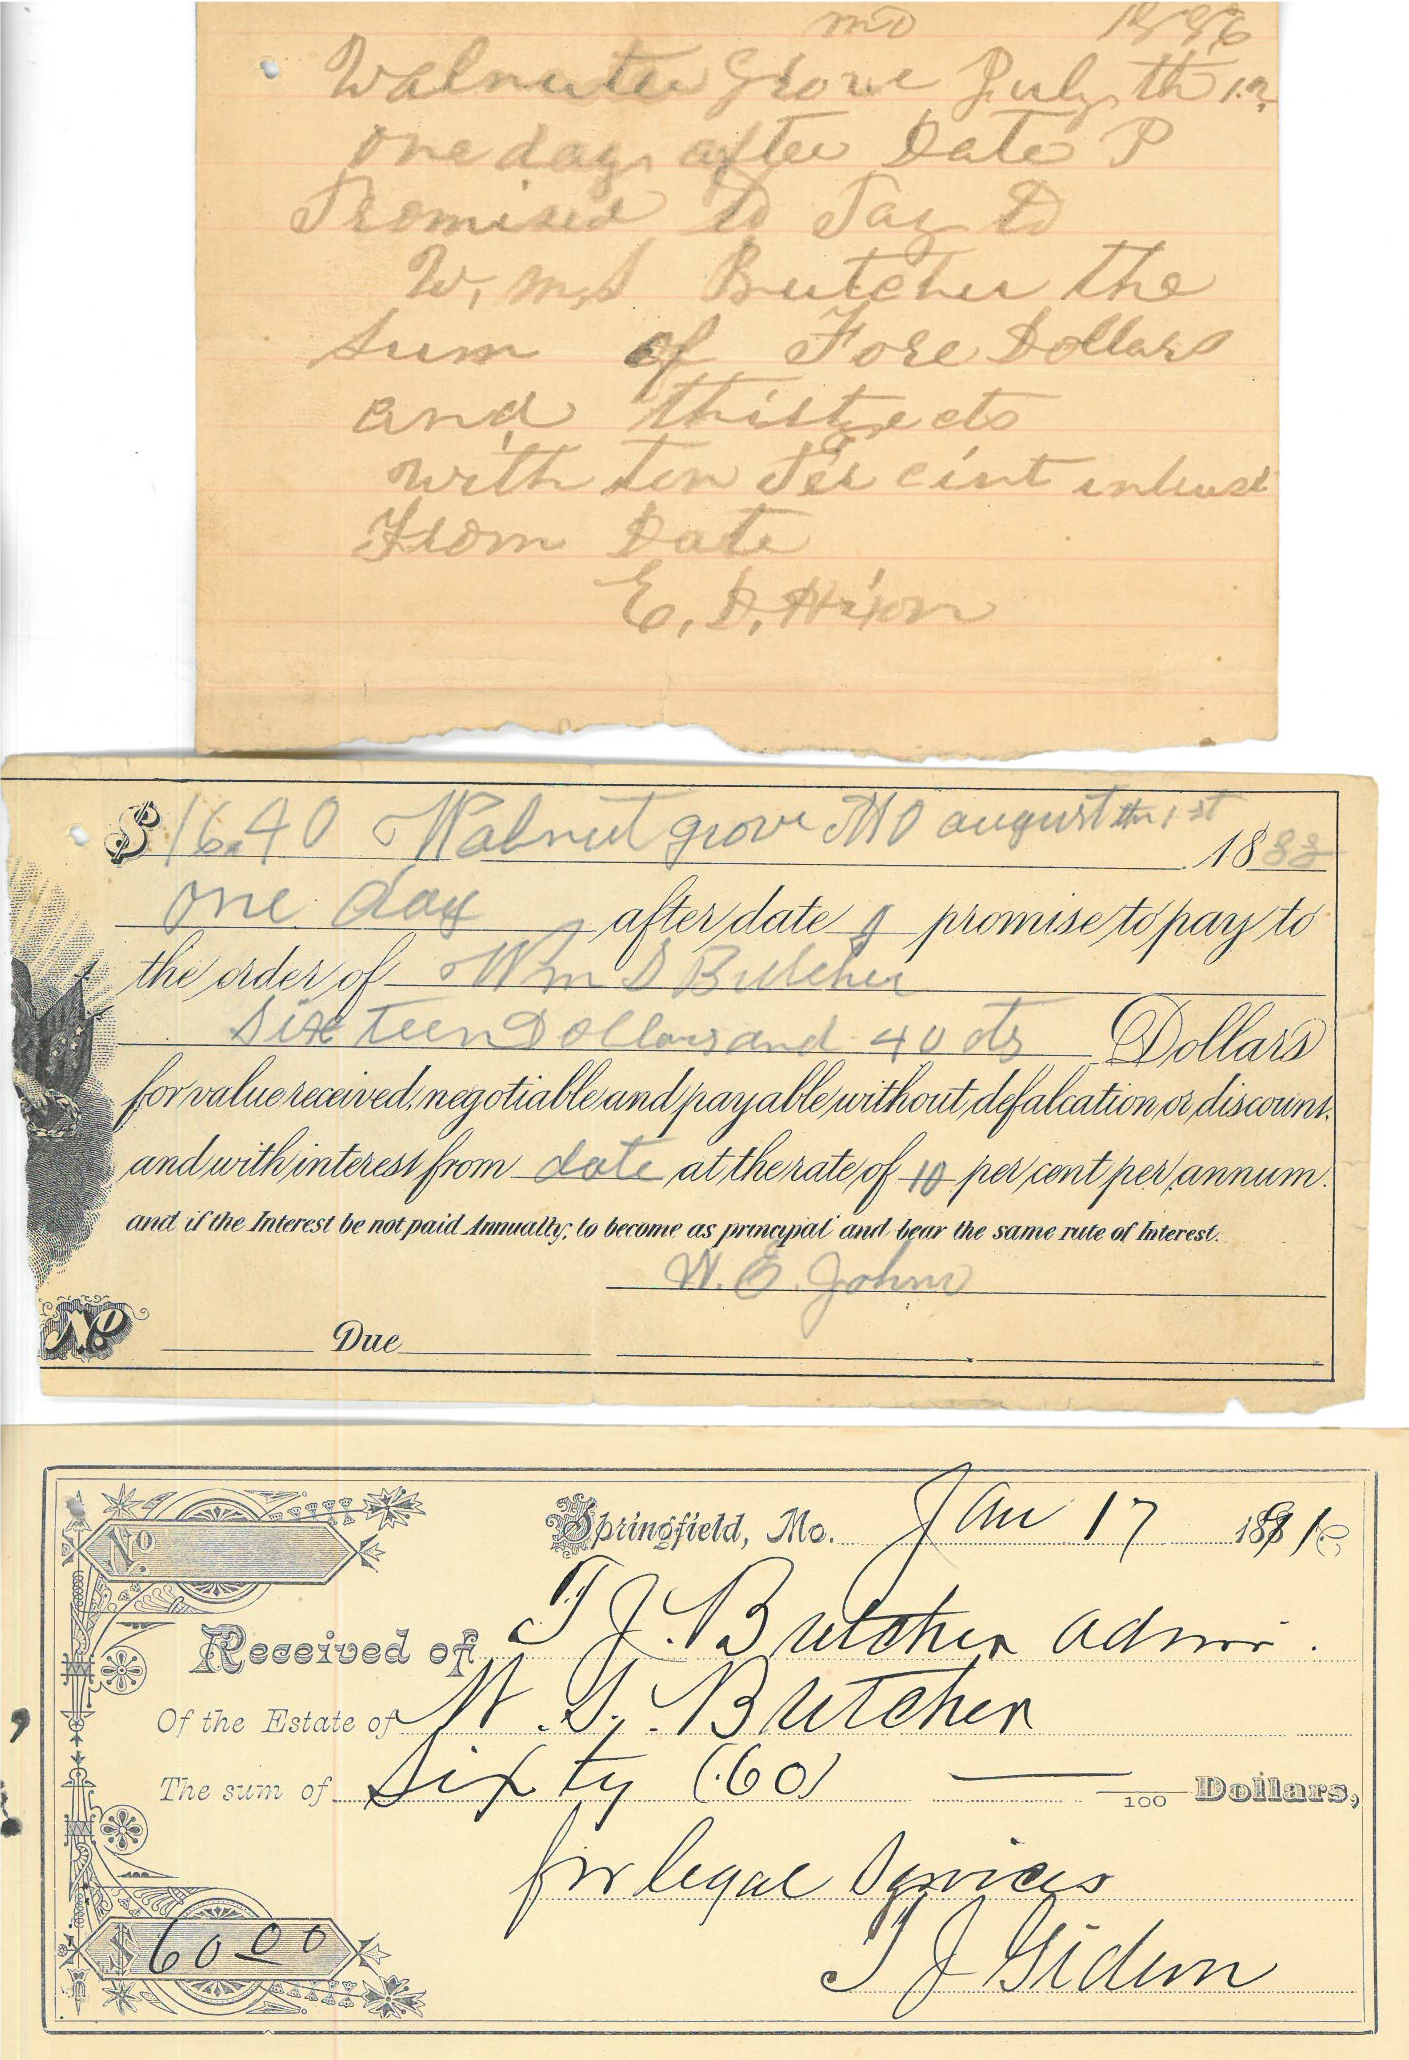 mo 1886
Walnuter Grove July th 12
one day after Date P
Promised to Pay to
W, m, S Butcher the
sum of Fore Dollars
and thirty cts
with ten Per cint intrust
From Date
E. D. Hixon
$16.40 Walnut grove MO august th 1st 1888
one day after date I promise to pay to
the order of Wm S Butcher
Sixteen Dollars and 40 cts Dollars
for value received, negotiable and payable without defalcation or discount,
and with interest from date at the rate of 10 per cent per annum.
and if the Interest be not paid Annually, to become as principal and bear the same rate of Interest.
W. E. Johns
No. Due
No. Springfield, Mo. Jan 17 1891
Received of T J. Butcher admr.
Of the Estate of W. S. Butcher
The sum of Sixty (60) /100 Dollars,
for legal Services
$ 60 00 T J Gideon